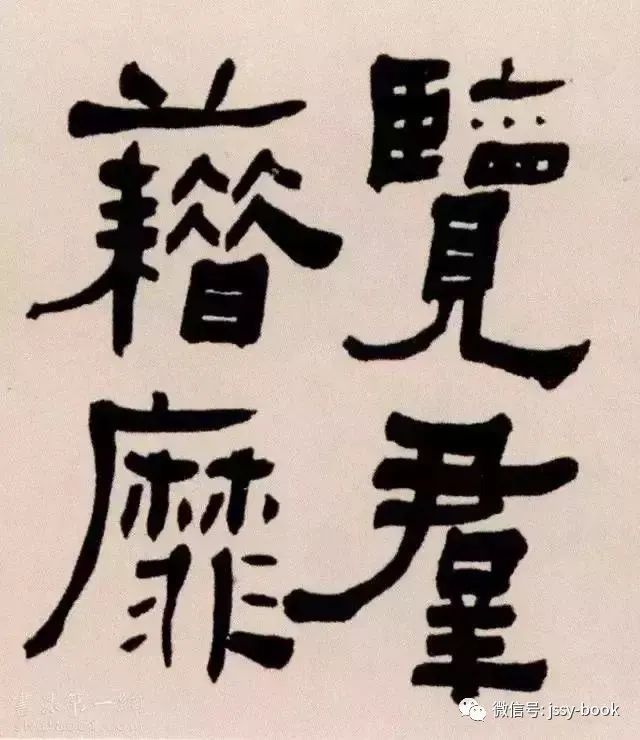 覽群
藉靡
書法第一網
微信号: jssy-book